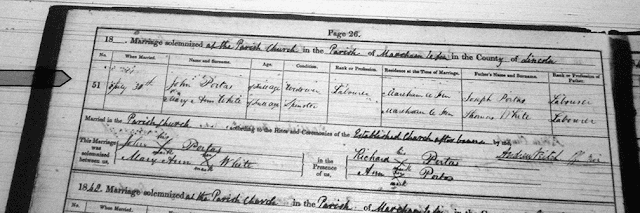 Page 26.
18 . Marriage solemnized at the Parish Church in the Parish of Mareham le fen in the County of Lincoln
No. When Married. Name and Surname. Age. Condition. Rank or Profession. Residence at the Time of Marriage. Father's Name and Surname. Rank or Profession of Father.
51 30th John Portas full age Widower Labourer Mareham le fen Joseph Portas Labourer
Mary Ann White full age Spinster Mareham le fen Thomas White Labourer
Married in the Parish Church according to the Rites and Ceremonies of the Established Church after banns by me
This Marriage was solemnized between us, John his mark Portas Mary Ann mark White in the Presence of us, Richard his mark Portas Ann mark Portas
1842. Marriage solemnized at the Parish Church in the Parish of Mareham le fen in the County